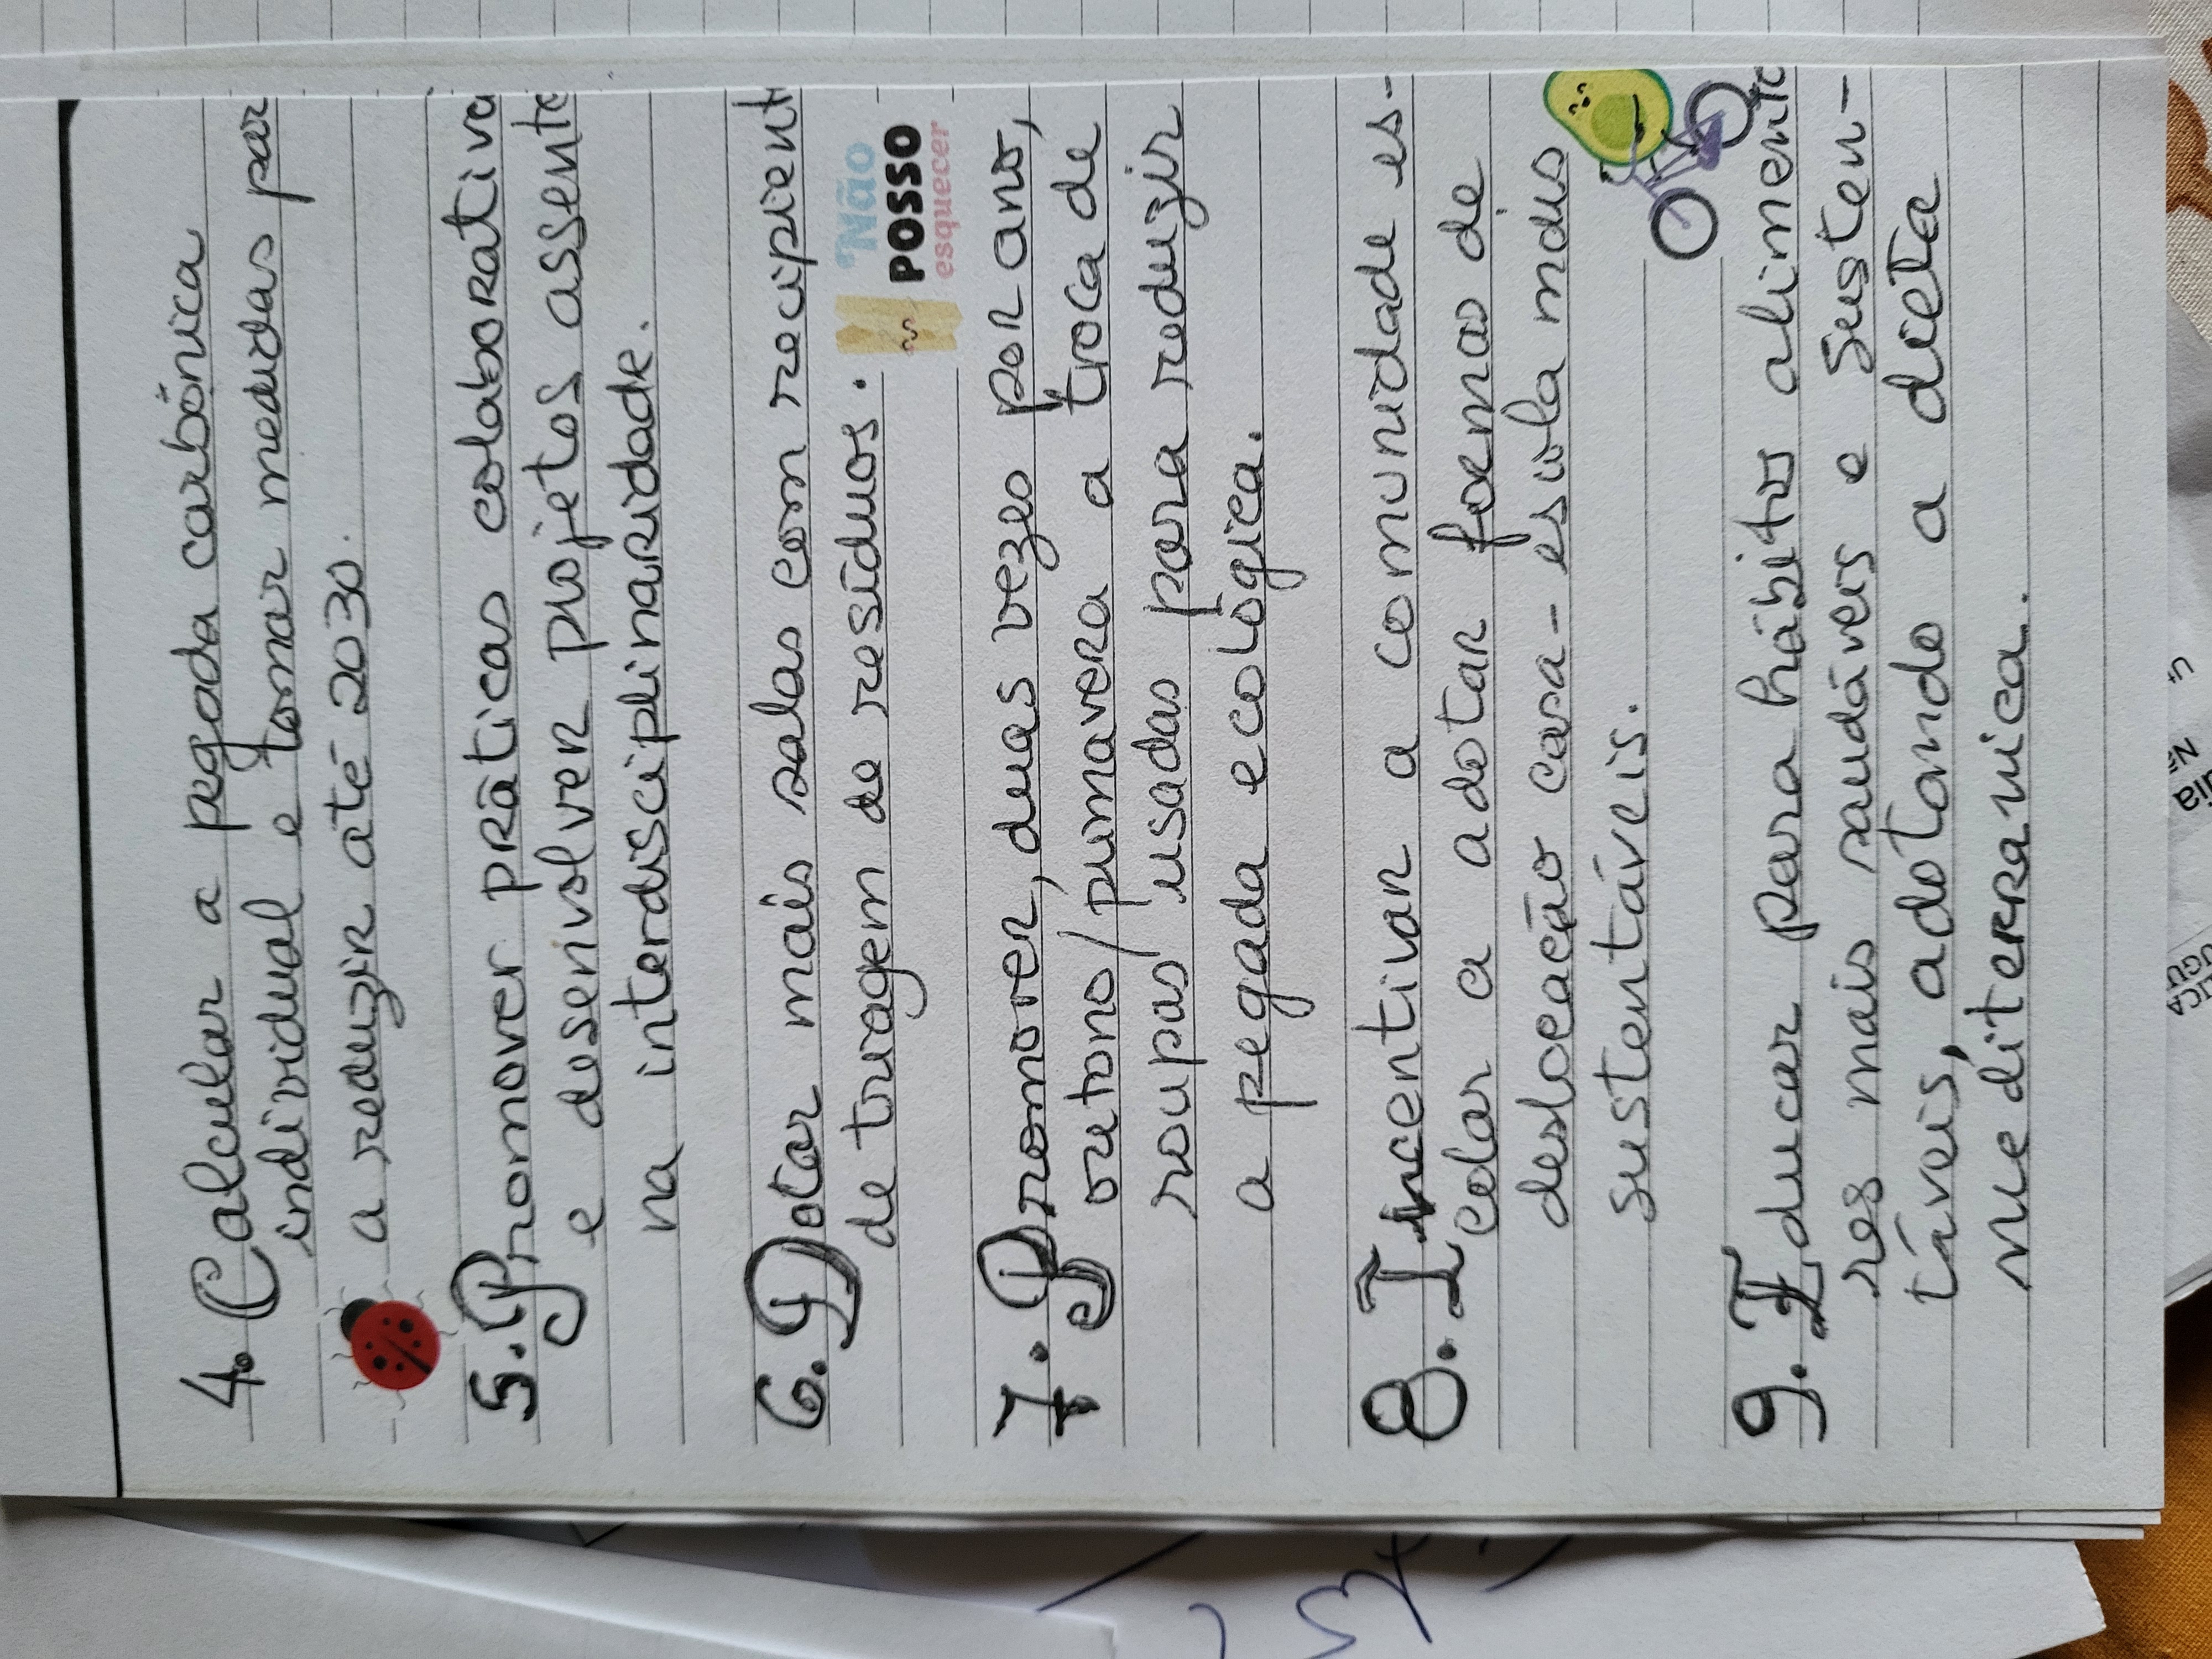 4. Calcular a pegada carbónica
individual e tomar medidas par
a reduzir até 2030.
5. Promover práticas colaborativa
e desenvolver projetos assente
na interdisciplinaridade.
6. Dotar mais salas com recipient
de triagem de resíduos.
Não
POSSO
esquecer
7. Promover, duas vezes por ano,
outono/primavera a troca de
roupas usadas para reduzir
a pegada ecológica.
8. Incentivar a comunidade es-
colar a adotar formas de
deslocação casa-escola mais
sustentáveis.
9. Educar para hábitos alimenta
res mais saudáveis e susten-
táveis, adotando a dieta
mediterranica.